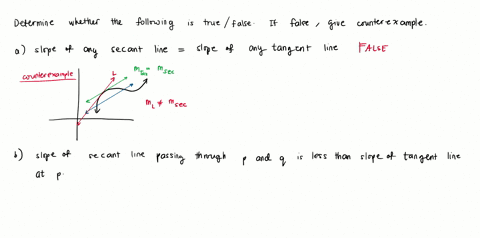 Determine whether the following is true/false. If false, give counterexample.
a) slope of any secant line = slope of any tangent line FALSE
counterexample
L
m_tan = m_sec
m_L ≠ m_sec
b) slope of secant line passing through p and q is less than slope of tangent line
at p.